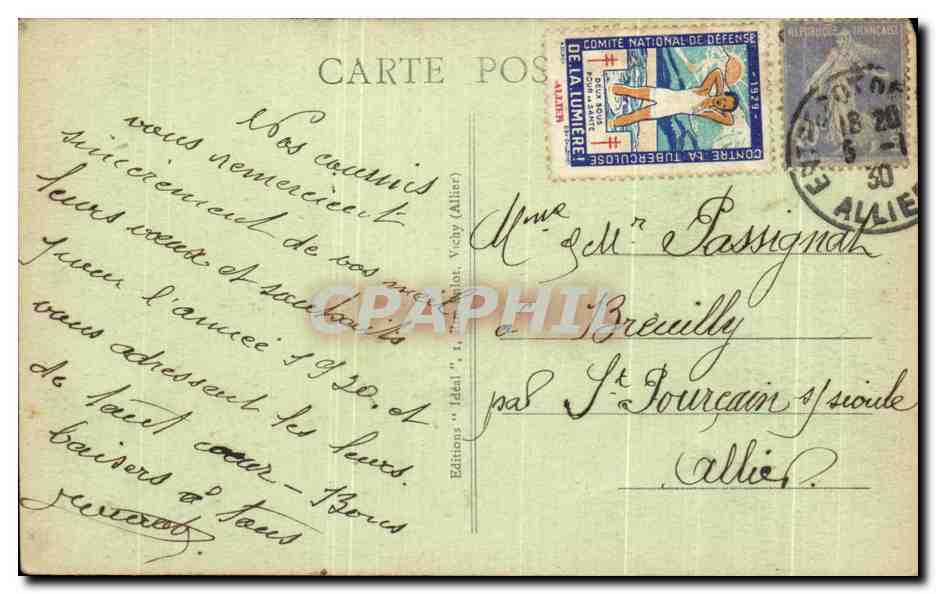 CARTE POS
COMITÉ NATIONAL DE DÉFENSE
CONTRE LA TUBERCULOSE
DE LA LUMIÈRE!
DEUX SOUS
POUR LA SANTÉ
-1929-
ALLIER
RÉPUBLIQUE FRANÇAISE
18 20
6 -1
30
ALLIER
Nos cousins
vous remercient
sincèrement de vos meil
leurs vœux et souhaits
pour l'année 1930. et
vous adressent les leurs.
de tout cœur - Bons
baisers à tous
Editions "Idéal", 1, Vichy (Allier)
Mme & Mr Passignat
à Breuilly
par St Pourçain s/sioule
Allier.
CPAPHIL